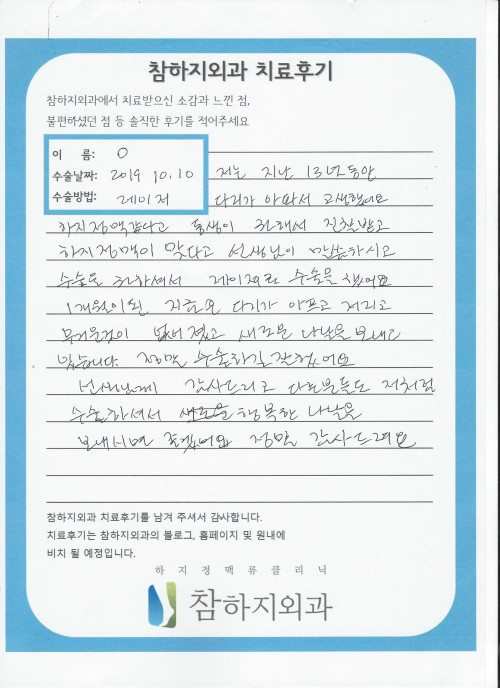 참하지외과 치료후기
참하지외과에서 치료받으신 소감과 느낀 점,
불편하셨던 점 등 솔직한 후기를 적어주세요
이 름: O
수술날짜: 2019 10. 10
수술방법: 레이저
저는 지난 13년동안
다리가 아파서 고생했어요
하지정맥같다고 동생이 권해서 진찰받고
하지정맥이 맞다고 선생님이 말씀하시고
수술을 권하셔서 레이저로 수술을 했어요
1개월이된 지금은 다리가 아프고 저리고
무거운것이 없어졌고 새로운 나날을 보내고
있습니다. 정말 수술하길 잘했어요
선생님께 감사드리고 다른분들도 저처럼
수술하셔서 행복한 나날을
보내시면 좋겠어요 정말 감사드려요
참하지외과 치료후기를 남겨 주셔서 감사합니다.
치료후기는 참하지외과의 블로그, 홈페이지 및 원내에
비치 될 예정입니다.
하지정맥류클리닉
참하지외과